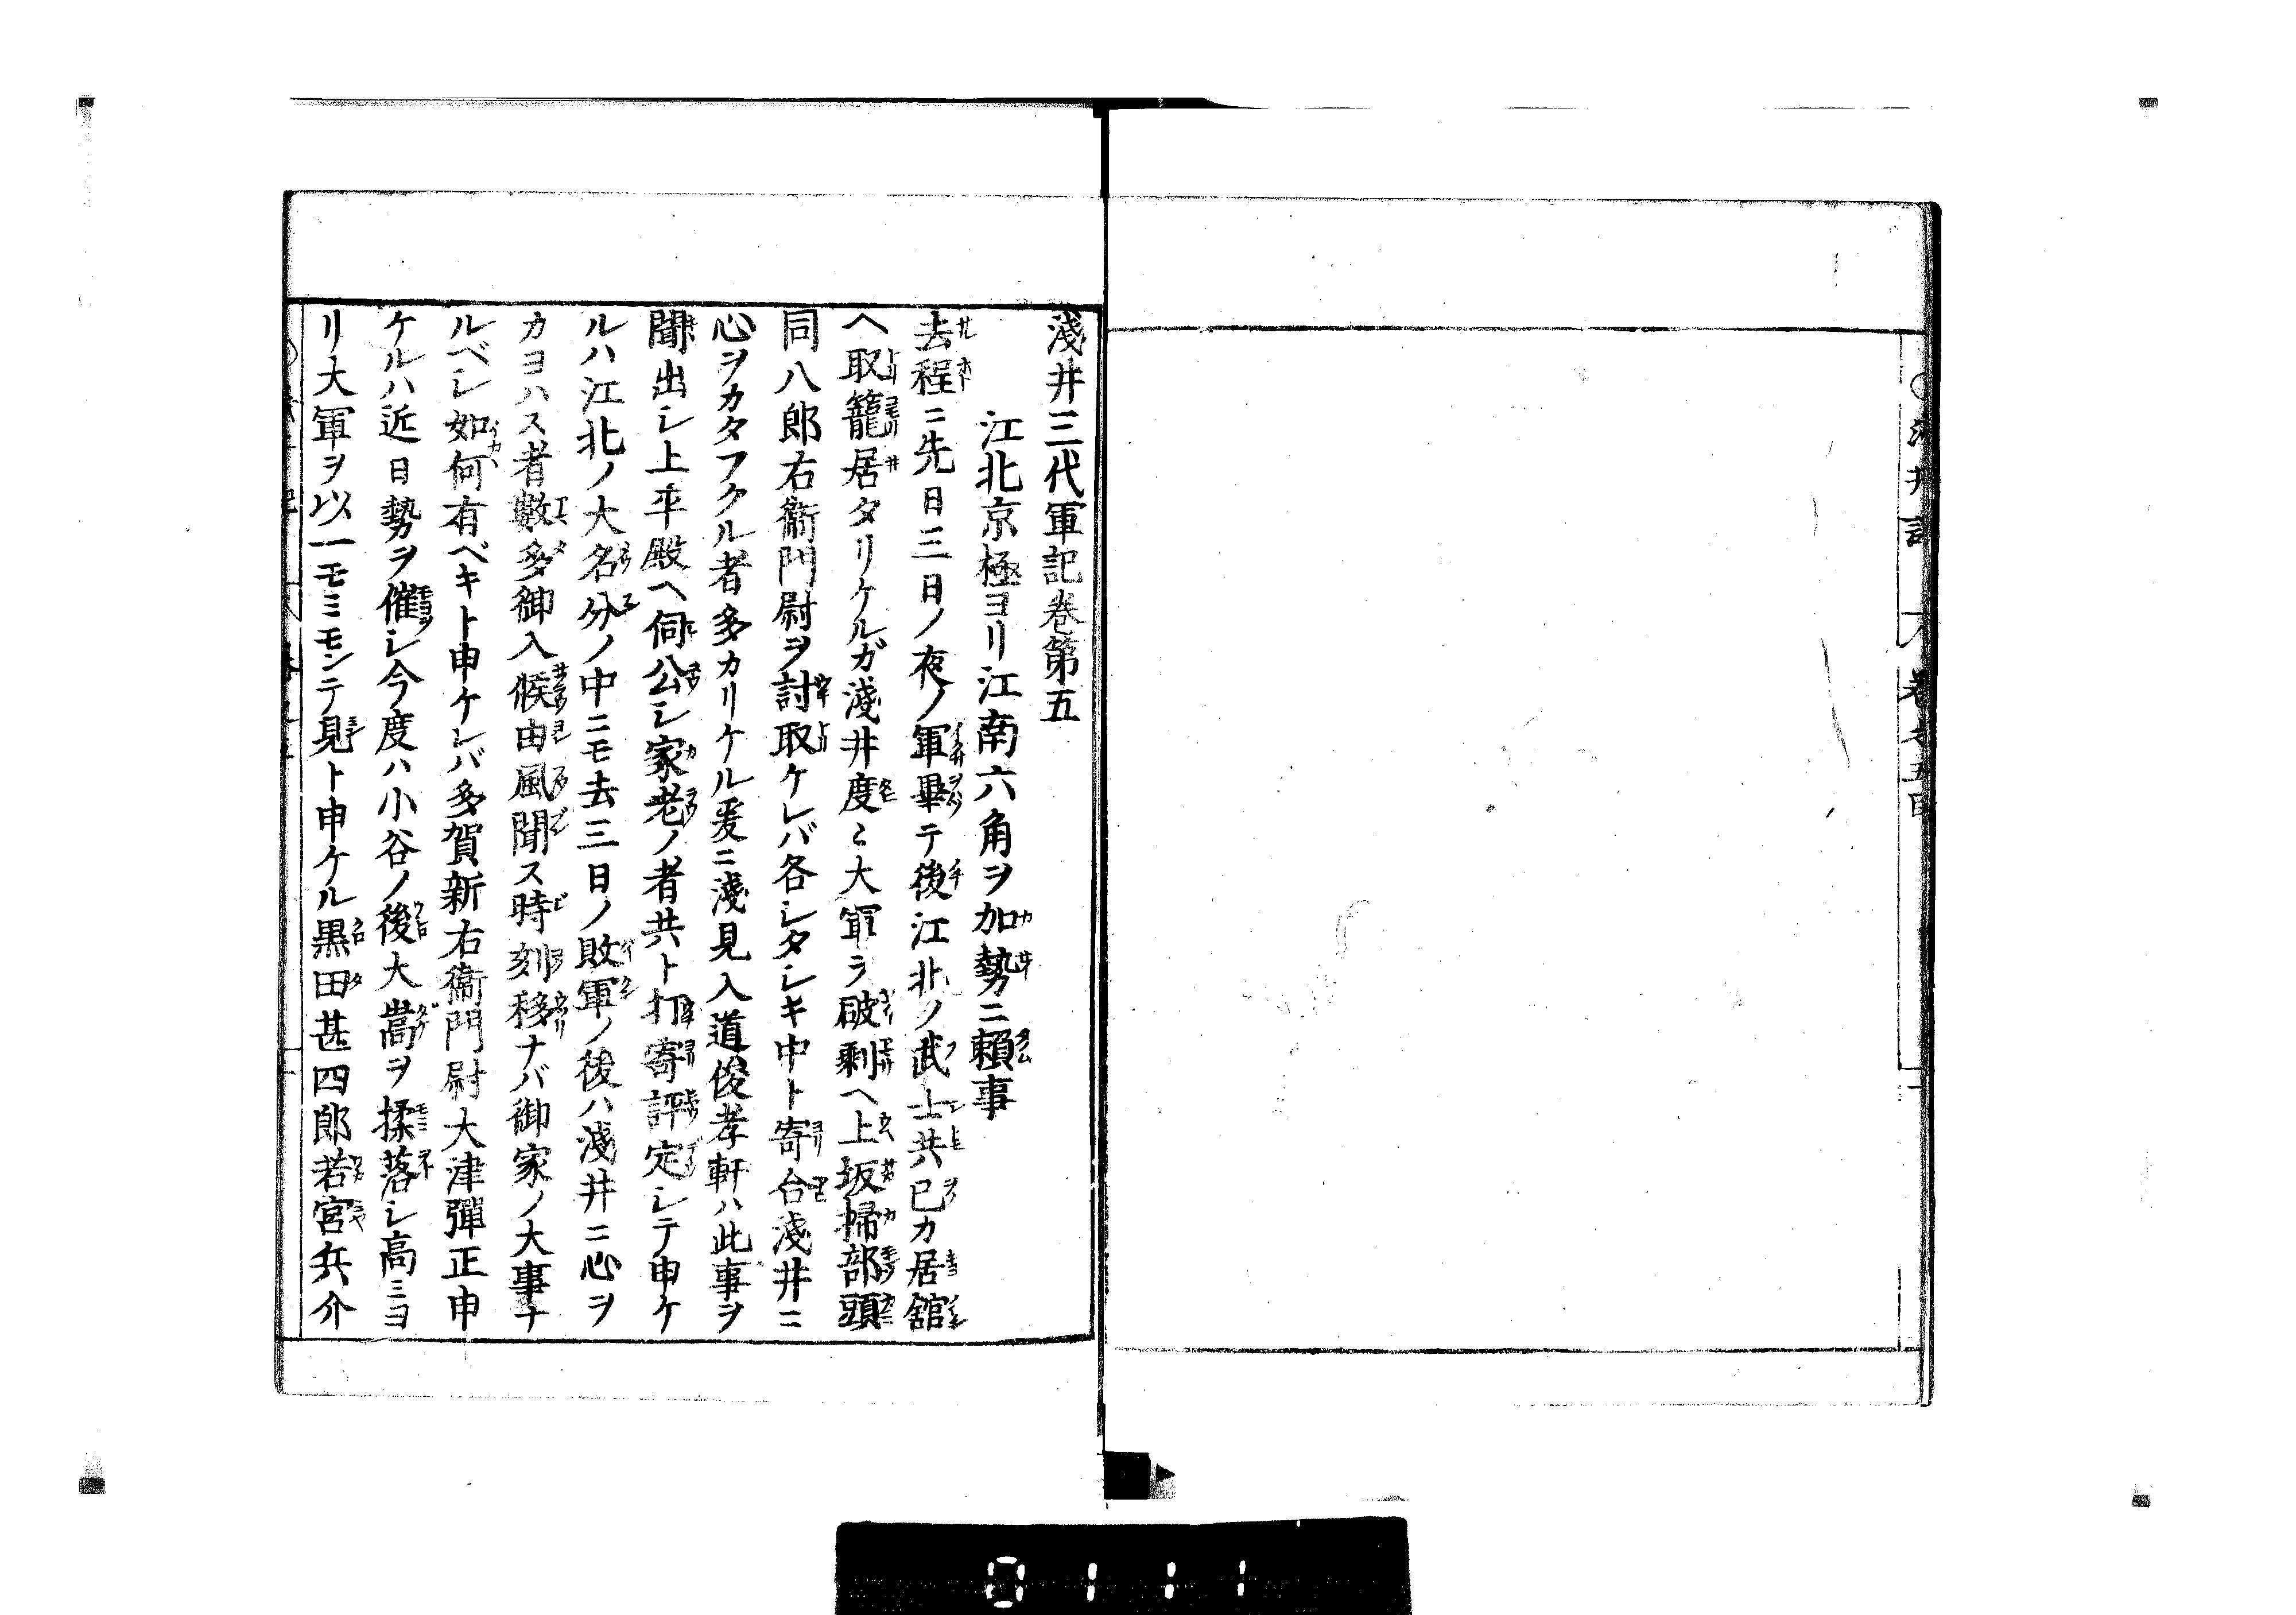 淺井三代軍記卷第五
江北京極ヨリ江南六角ヲ加勢ニ賴事
去程ニ先日三日ノ夜ノ軍畢テ後江北ノ武士共已カ居舘
ヘ取籠居タリケルガ淺井度々大軍ヲ破剩ヘ上坂掃部頭
同八郎右衞門尉ヲ討取ケレバ各シタシキ中ト寄合淺井ニ
心ヲカタフクル者多カリケル爰ニ淺見入道俊孝軒ハ此事ヲ
聞出シ上平殿ヘ伺公シ家老ノ者共ト打寄評定シテ申ケ
ルハ江北ノ大名分ノ中ニモ去三日ノ敗軍ノ後ハ淺井ニ心ヲ
カヨハス者數多御入候由風聞ス時刻移ナバ御家ノ大事ナ
ルベシ如何有ベキト申ケレバ多賀新右衞門尉大津彈正申
ケルハ近日勢ヲ催シ今度ハ小谷ノ後大嵩ヲ揉落シ高ミヨ
リ大軍ヲ以一モミモンテ見ト申ケル黒田甚四郎若宮兵介
0111